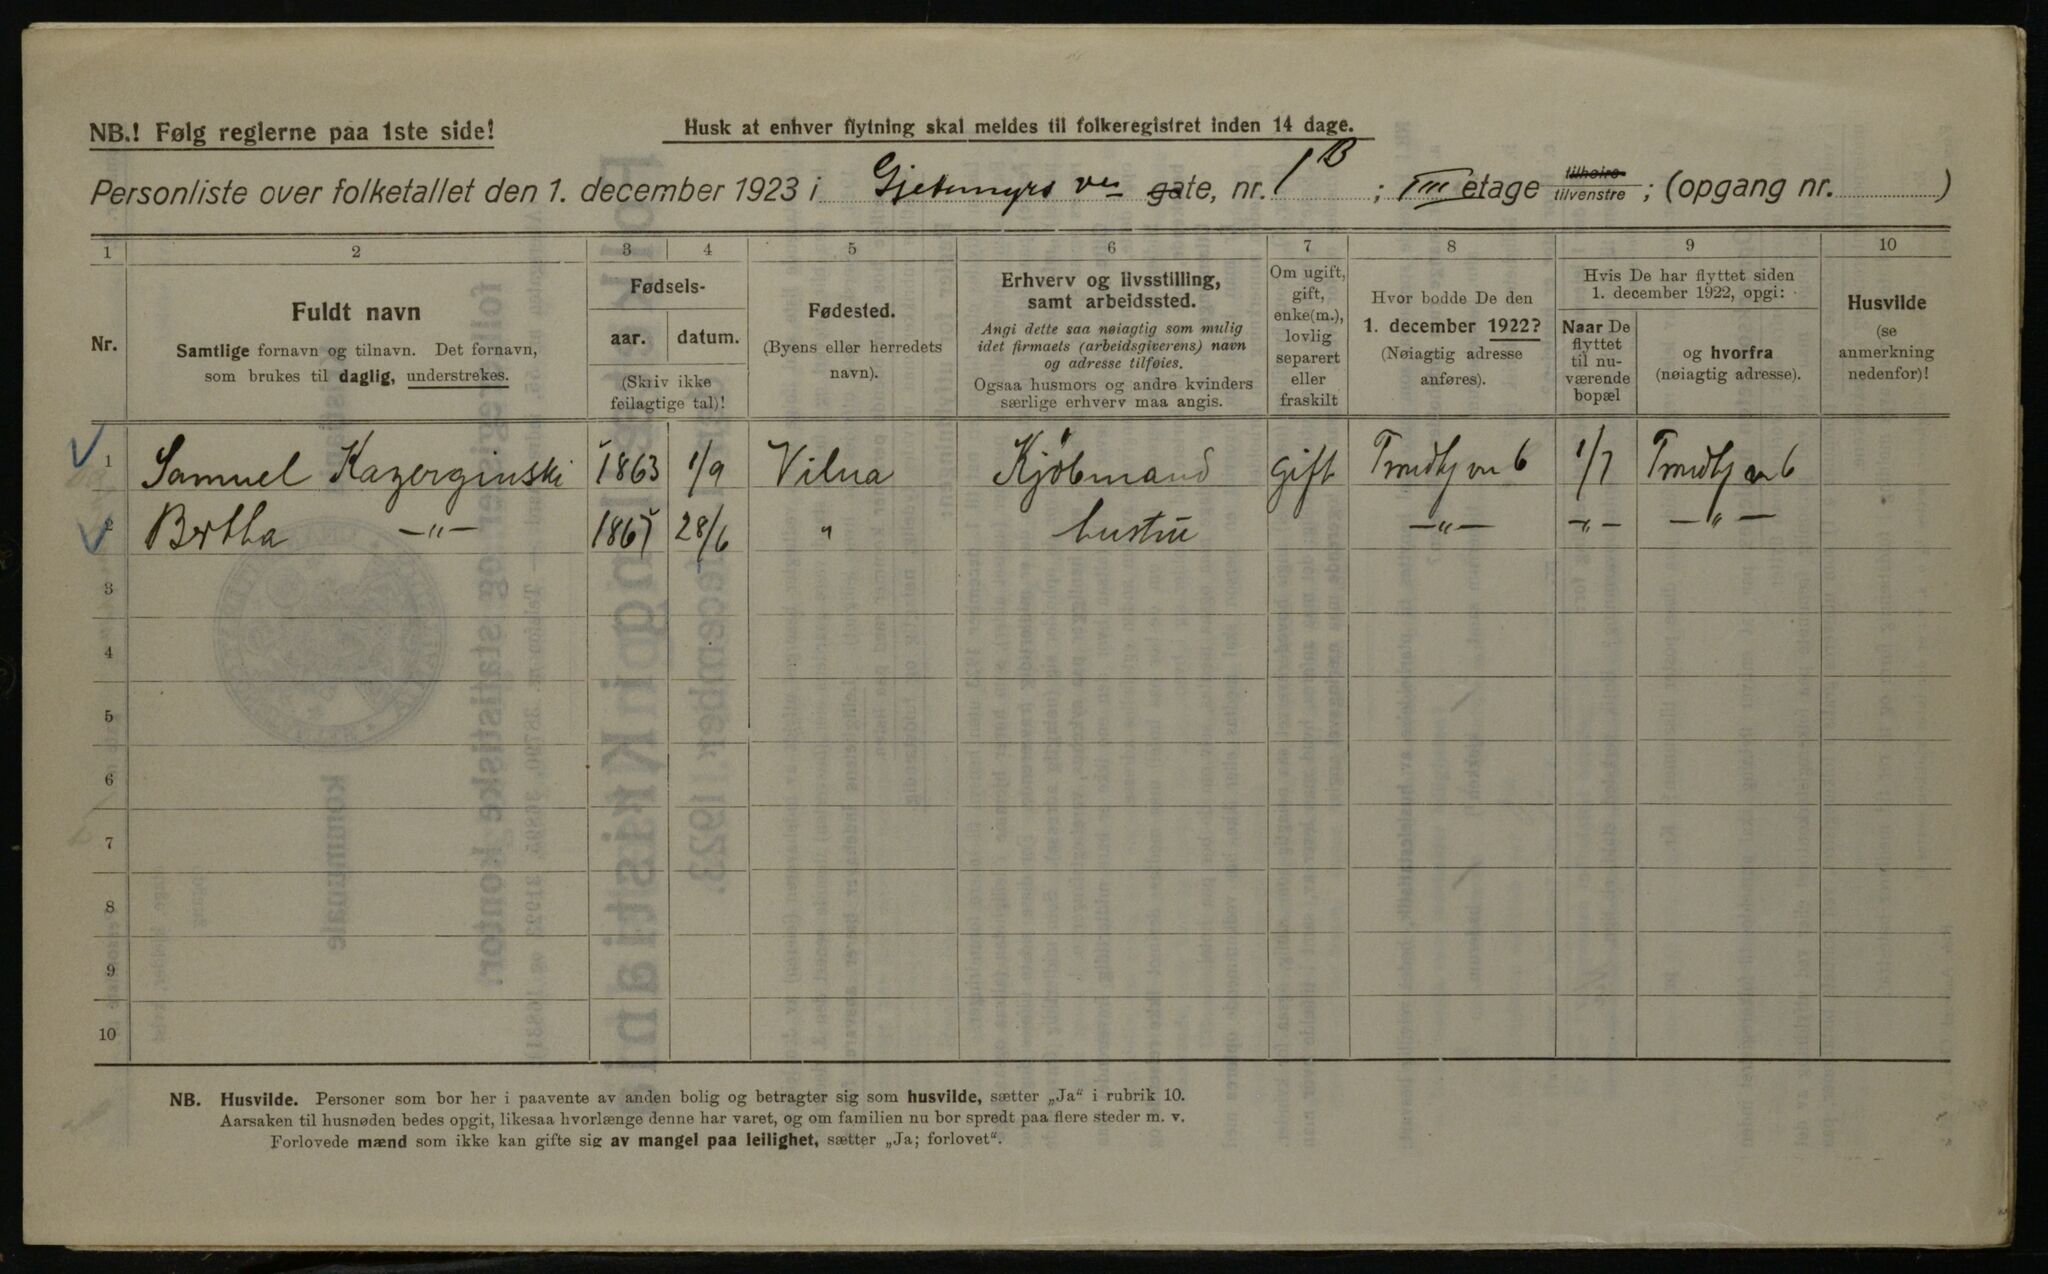 NB.! Følg reglerne paa 1ste side!
Husk at enhver flytning skal meldes til folkeregistret inden 14 dage.
Personliste over folketallet den 1. december 1923 i Gjetemyrs vei gate, nr. 1B; III etage tilhøire tilvenstre; (opgang nr. )
1 2 3 4 5 6 7 8 9 10
Nr.
Fuldt navn
Samtlige fornavn og tilnavn. Det fornavn,
som brukes til daglig, understrekes.
Fødsels-
aar. datum.
(Skriv ikke
feilagtige tal)!
Fødested.
(Byens eller herredets
navn).
Erhverv og livsstilling,
samt arbeidssted.
Angi dette saa nøiagtig som mulig
idet firmaets (arbeidsgiverens) navn
og adresse tilføies.
Ogsaa husmors og andre kvinders
særlige erhverv maa angis.
Om ugift,
gift,
enke(m.),
lovlig
separert
eller
fraskilt
Hvor bodde De den
1. december 1922?
(Nøiagtig adresse
anføres).
Hvis De har flyttet siden
1. december 1922, opgi:
Naar De
flyttet
til nu-
værende
bopæl
og hvorfra
(nøiagtig adresse).
Husvilde
(se
anmerkning
nedenfor)!
1 Samuel Kazerginski 1863 1/9 Vilna Kjöbmand gift Trondhj vn 6 1/7 Trondhj vn 6
2 Bertha —"— 1865 28/6 " hustru —"— —"— —"—
3
4
5
6
7
8
9
10
NB. Husvilde. Personer som bor her i paavente av anden bolig og betragter sig som husvilde, sætter „Ja“ i rubrik 10.
Aarsaken til husnøden bedes opgit, likesaa hvorlænge denne har varet, og om familien nu bor spredt paa flere steder m. v.
Forlovede mænd som ikke kan gifte sig av mangel paa leilighet, sætter „Ja; forlovet“.